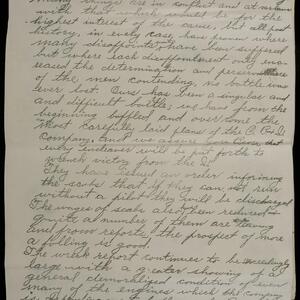 things are in conflict and at
surely that which would be for the
highest interest of the cause, but all past
history, in evely case, have proven where
many disappoints have been suffered
but where each disappointment only inc-
reased the determination and perseverance
of the men contending, no battle was
ever lost. Ours has been a singular and
and difficult battle; we have from the
beginning baffled and overcome the
most carefully laid plans of the C. B & Q
Company, and we assure you that
every endeavor will be put forth to
wrench victory from the Q.
They have issued an order informing
the scabs that if they can not run
without a pilot they will be discharged
The wages of scabs also been reduced
quite a number of them are leaving
and from reports the prospect of more
a folling is good.
The wreck report continues to be exceedingly
large with a greater showing of a
general demoralized condition of even
many of the engines which the company